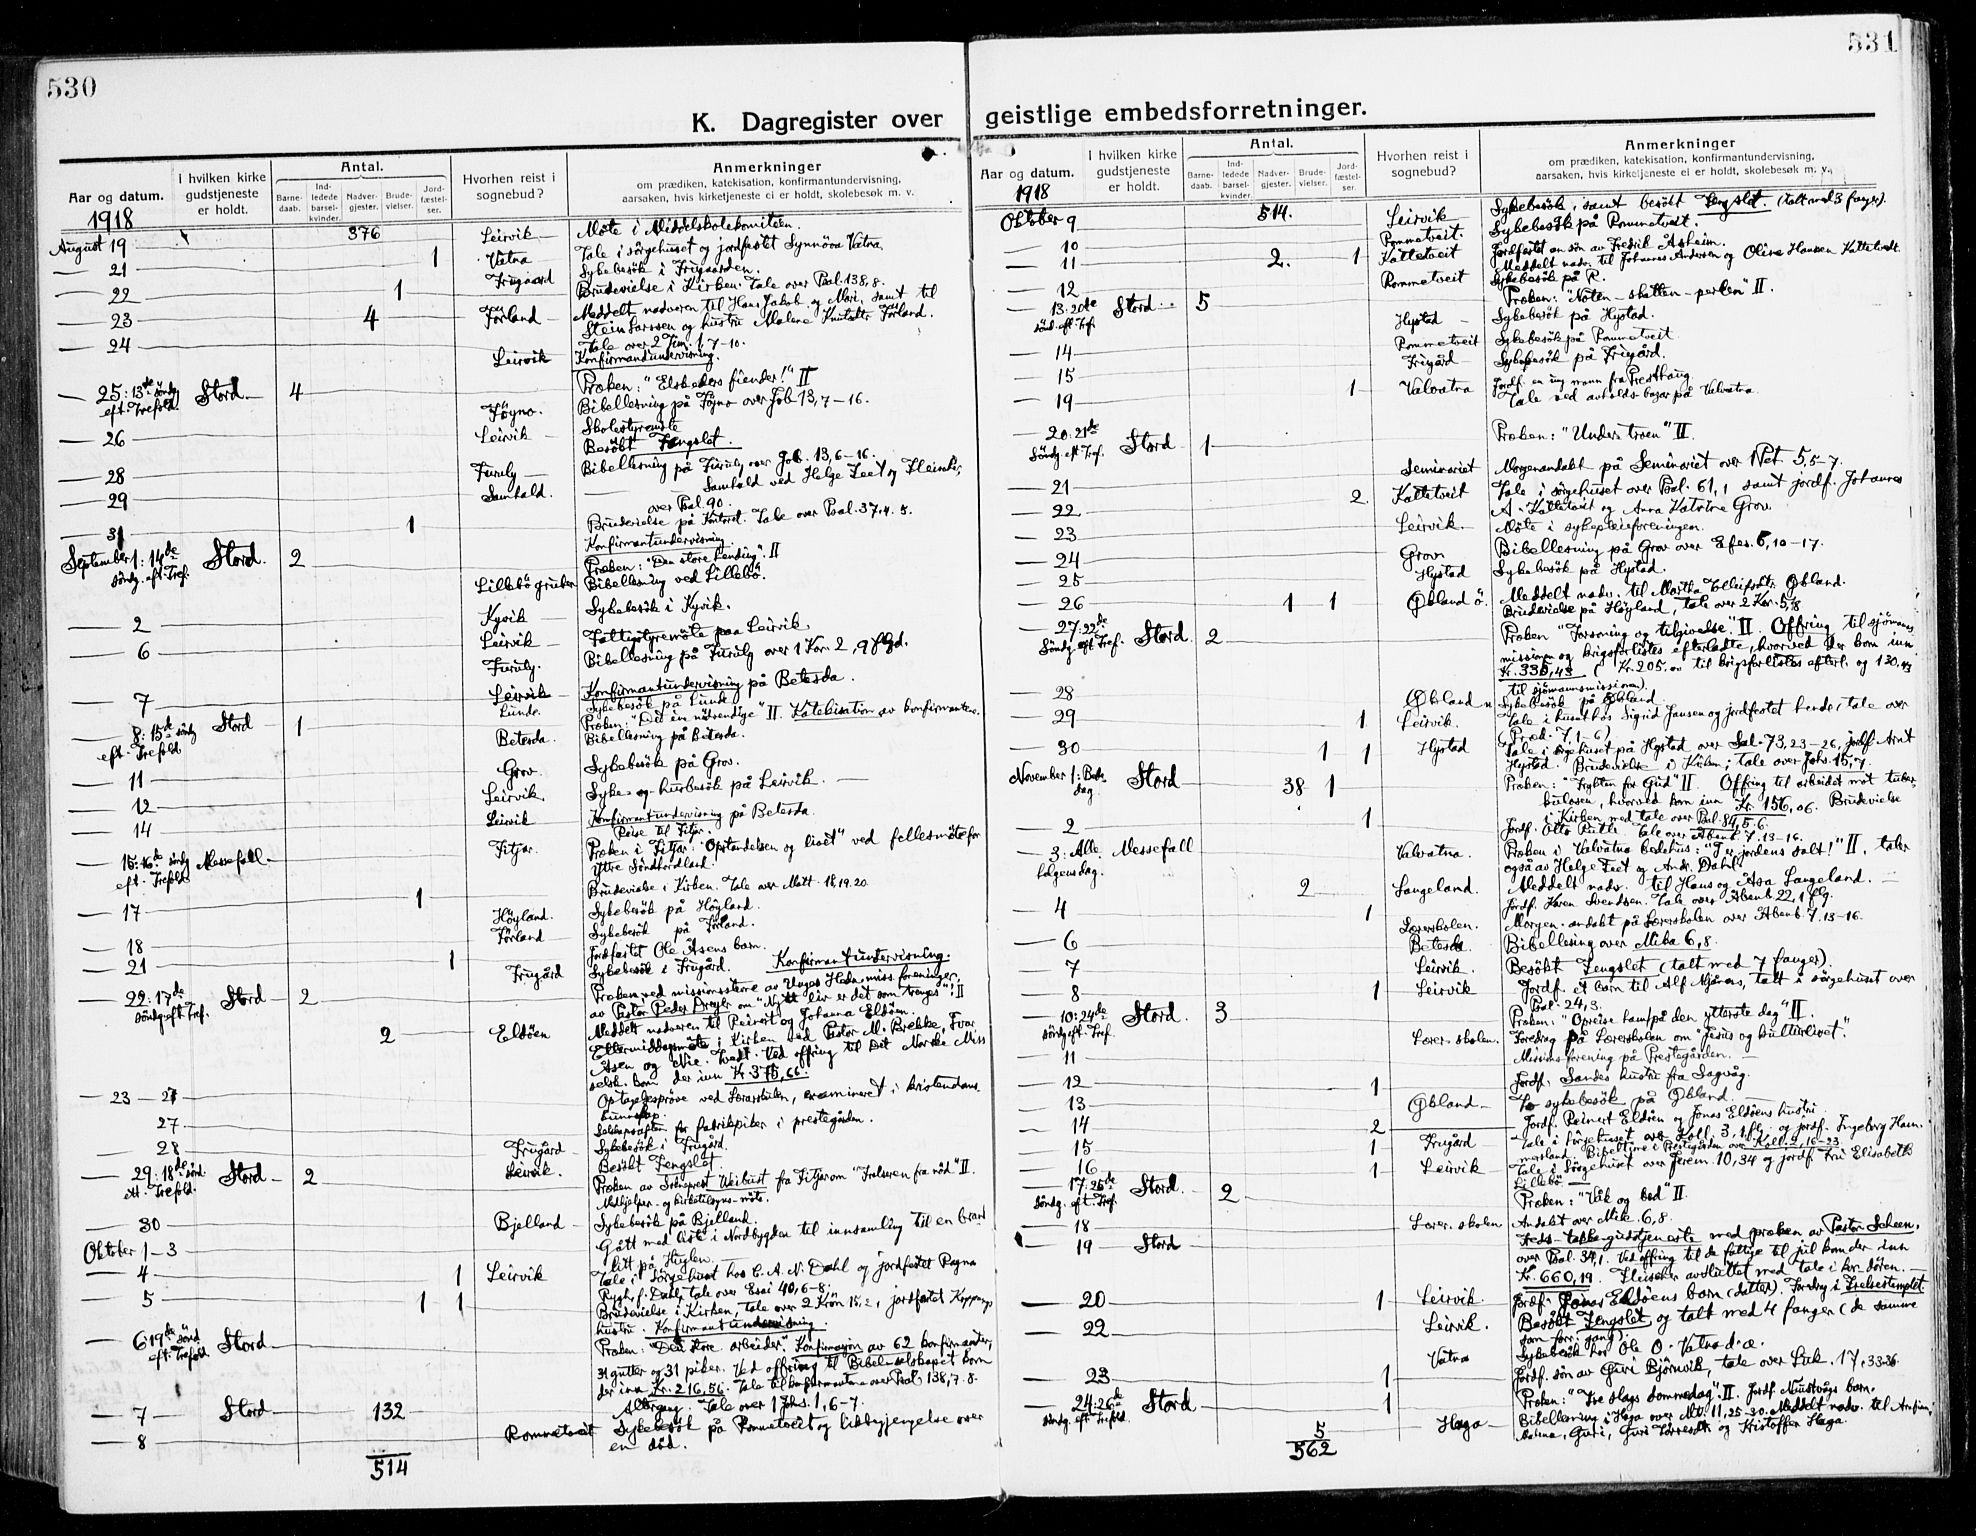 530
K. Dagregister over
Aar og datum.
I hvilken kirke gudstjeneste er holdt.
Antal.
Barne-daab.
Ind-ledede barsel-kvinder.
Nadver-gjester.
Brude-vielser.
Jord-fæstel-ser.
Hvorhen reist i sognebud?
Anmerkninger
om prædiken, katekisation, konfirmantundervisning,
aarsaken, hvis kirketjeneste ei er holdt, skolebesøk m. v.
1918
376
August 19 Leirvik Møte i Middelskolekomiteen.
21 1 Vatna Tale i sørgehuset og jordfestet Synnöva Vatna.
Frugaard Sykebesök i Frugaarden.
22 1 Brudevielse i Kirken. Tale over Psal. 138, 8.
23 4 Förland Meddelt nadveren til Hans Jakob og Mari, samt til
Stein Larssen og hustru Malene Förland.
24 Tale over 2 Tim. 1, 7-10.
Leirvik Konfirmantundervisning.
25: 13de söndg eft. Trefold. Stord 4 Præken: II
Föyno. Bibellesning på Föyno over Joh 13, 7-16.
26 Leirvik Skolestyremöte
Besökt Fengslet.
28 Furuly Bibellesning på Furuly over Joh. 13, 6-16.
29 Samhald. Samhald ved Helge Leet og
over Psal. 90.
31 1 Brudevielse på Kontoret. Tale over Psal. 37, 4. 5.
Konfirmantundervisning.
September 1: 14de söndg. eft. Tref. Stord. 2 Præken: "Den store II
Lillebö gruber Bibellesning ved Lillebö.
2 Kyvik Sykebesök i Kyvik.
6 Leirvik Fattigstyremöte paa Leirvik.
Furuly. Bibellesning på Furuly over 1 Kor. 2, 9 flgd.
7 Leirvik Konfirmantundervisning på Betesda.
Lunde. Sykebesök på Lunde
8: 15de söndg eft. Trefold. Stord 1 Præken: "Det ene nödvendige" II. Katekisation av konfirmantene.
Betesda. Bibellesning på Betesda.
11 Grov. Sykebesök på Grov.
12 Leirvik. Syke- og husbesök på Leirvik.
14 Leirvik Konfirmantundervisning på Betesda.
Reise til Fitjar.
15: 16de söndg eft. Trefold. Messefall. Fitjar. Præken i Fitjar: "Opstandelsen og livet" ved fellesmöte for
yttre Söndhordland.
17 1 Brudevielse i Kirken. Tale over Matt. 18, 19. 20.
Höyland. Sykebesök på Höyland.
18 Förland Sykebesök på Förland.
21 1 Jordfestet Ole Åsens barn.
Frugård Sykebesök i Frugård. Konfirmantundervisning.
22: 17de söndg eft. Tref. Stord 2 Præken ved missionsstevne av Unges Hedn.miss.foreninger
av Pastor Peder om "Nytt liv er det som trenges" II
2 Eldöen Meddelt nadveren til Reinert og Johanna Eldöen.
Ettermiddagsmöte i Kirken ved Pastor M. Brekke, Ivar
Åsen og Nic. Tvedt. Ved offring til Det Norske Miss
selsk. kom der inn Kr. 375,66.
23 - 27 Optagelsespröve ved Lærerskulen, examinert i kristendoms
kunnskap.
27 Selskapsaften for fabrikpiker i prestegården.
28 Frugård Sykebesök i Frugård.
Leirvik. Besökt Fengslet.
29: 18de sönd. eft. Trefold. Stord 2 Præken av Sokneprest Ukibust fra Fitjar om "Frelseren fra nöd" II.
Vedhjelper- og kirketilsyns-möte.
30 Bjelland Sykebesök på Bjelland.
Oktober 1-3 Gått med liste i Nordbygden til innsamling til en brand
litt på Huglen.
4 1 Leirvik Tale i Sörgehuset hos C. A. N. Dahl og jordfestet Ragna
Rygh, f. Dahl, tale over Esai 40, 6-8.
5 1 1 Brudevielse i Kirken, tale over 2 Krön 15, 2, jordfestet
hustru. Konfirmantundervisning.
6: 19de sönd eft. Trefold Stord Præken: "Den store arbeider". Konfirmasjon av 62 konfirmander,
31 gutter og 31 piker. Ved offring til Bibelselskapet kom
der inn Kr. 216,56. Tale til konfirmantene over Psal 138, 7. 8.
7 Stord 132 Altergang. Tale over 1 Joh. 1, 6-7.
8 Rommetveit Sykebesök på Rommetveit og likbegjengelse over
en död.
514
531
geistlige embedsforretninger.
Aar og datum.
I hvilken kirke gudstjeneste er holdt.
Antal.
Barne-daab.
Ind-ledede barsel-kvinder.
Nadver-gjester.
Brude-vielser.
Jord-fæstel-ser.
Hvorhen reist i sognebud?
Anmerkninger
om prædiken, katekisation, konfirmantundervisning,
aarsaken, hvis kirketjeneste ei er holdt, skolebesøk m. v.
1918
514.
Oktober 9 Leirvik Sykebesök, samt besökt Fengslet. (talt med 3 fanger).
Rommetveit. Sykebesök på Rommetveit.
10 1 Jordfestet en sön av Fredrik Åsheim.
11 2. Kattetveit Meddelt nadv. til Johannes Andersen og Oline Hansen Kattetvedt.
12 Rommetveit Sykebesök på R.
13. 20de sönd. eft. Tref. Stord 5 Præken: "Noten - skatten - perlen" II.
Hystad Sykebesök på Hystad.
14 Rommetveit Sykebesök på Rommetveit
15 Frugård Sykebesök på Frugård.
19 1 Valvatna Jordf. en ung mann fra Presthaug
Tale ved avholds-bazar på Valvatna.
20. 21de Söndg. eft. Tref. Stord 1 Præken: "Under troen" II.
Seminariet Morgenandakt på Seminariet over 1 Pet 5, 5-7.
21 2. Kattetveit Tale i sörgehuset over Psal. 61, 1 samt jordf. Johannes
22 A. Kattetveit og Anna Katrine Grov.
23 Leirvik Möte i sykepleieforeningen.
24 Grov Bibellesning på Grov over Efes. 6, 10-17.
25 Hystad Sykebesök på Hystad.
26 1 1 Øbland ö. Meddelt nadv. til Martha Øbland.
Brudevielse på Höyland, tale over 2 Kor. 5, 8
27: 22de Söndg. eft Tref. Stord. 2 Præken "Forsoning og tilgivelse". II. Offring til sjömanns
missionen og krigsforlistes efterladte, hvorved der kom inn
Kr. 335,43 (Kr. 205.00 til krigsforlistes efterl. og 130,43
til sjömannsmissionen).
28 Øbland n Sykebesök på Øbland
29 1 Leirvik. Tale i huset hos Sigrid Jansen og jordfestet hende (tale over
(Præd. 7, 1-6)
30 1 1 Hystad Tale i sörgehuset på Hystad over Sal. 73, 23-26, jordf. Arnt
Hystad. Brudevielse i Kirken; tale over Joh. 15, 7.
November 1: Bededag Stord 38 1 Præken: "Frykten for Gud" II Offring til arbeidet mot tuber-
kulosen, hvorved kom inn Kr. 156,06. Brudevielse
i Kirken med tale over Psal. 84, 5-6.
2 1 Jordf. Otto Tale over Åbenb. 7. 13-16.
3: Alle helgensdag. Messefall Valvatna. Præken i Valvatna bedehus: "I er jordens salt!" II, taler
også av Helge Leet og Andr. Dahl.
2 Langeland. Meddelt nadv. til Hans og Åsa Langeland.
4 1 Jordf. Karen Svendsen. Tale over Åbenb. 22, 1 flg.
6 Lærerskolen. Morgen-andakt på Lærerskolen over Åbenb. 7. 13-16.
Betesda Bibellesning over Mika 6, 8.
7 Leirvik. Besökt Fengslet (talt med 7 fanger).
8 1 Leirvik Jordf. et barn til Alf Njærøs, talt i sörgehuset over
Psal. 24, 3.
10: 24de söndg eft. Tref. Stord. 3 Præken: "Opreise ham på den ytterste dag" II.
Lærer-skolen. Foredrag på Lærerskolen om "Jesus og kulturlivet".
11 Missionsforening på Prestegården.
12 1 Jordf. Sandes hustru fra Sagvåg.
13 Øbland To sykebesök på Øbland
14 2 Jordf. Reinert Eldöen og Jonas Eldöens hustru
15 1 Frugård Tale i Sörgehuset over Koll. 3, 1 flg. og jordf. Ingeborg Ham-
mersland. Bibeltime i Prestegården over Koll. 2, 16-23.
16 1 Leirvik Tale i Sörgehuset over Jerem. 10, 34 og jordf. Fru Elisabeth
Lillebö
17: 25de Söndg. eft. Tref. Stord. 2 Præken: "Våk og bed" II.
18 Lærer.skolen Andakt over Mik. 6, 8.
19 Stord Freds-takke-gudstjeneste med præken av Pastor Scheen,
over Psal. 34, 1. Ved offring til de fattige til jul kom der inn
Kr. 660,19. avsluttet med tale i kor-dören.
20 1 Leirvik. Jordf. Jonas Eldöens barn (datter). Foredrag i Frelsestemplet
22 Leirvik. Besökt Fengslet og talt med 4 fanger (de samme
som forr. gang).
Vatna Sykebesök hos Ole O. Vatna d. æ.
23 1 Jordf. sön av Guri Björnvik, tale over Luk. 17, 33-36.
24: 26de söndg. eft. Trefold. Stord 1 Præken: "Tre slags dommedag". II. Jordf. Nuustvågs barn.
5 Haga Bibellesning i Haga over Mt. 11, 25-30. Meddelt nadv. til
Guri, Guri Torresdtr. og Kristoffer Haga.
562